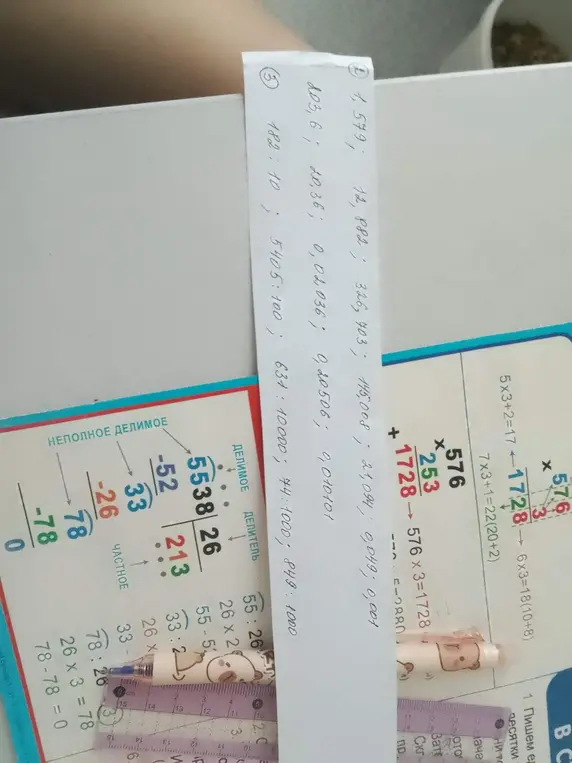 ② 1,579; 12,882; 326,703; 115,008; 21,094; 0,049; 0,001
203,6; 20,36; 0,02036; 0,20506; 0,010101
③ 182:10; 5405:100; 631:10000; 44:1000; 849:1000
576
x 3
1728 → 6x3=18(10+8)
5x3+2=17
7x3+1=22(20+2)
576
x 253
+ 1728 → 576 x 3=1728
1. Пишем
ДЕЛИМОЕ
ДЕЛИТЕЛЬ
НЕПОЛНОЕ ДЕЛИМОЕ
ЧАСТНОЕ
5538 26
-52 213
33
-26
78
-78
0
55 : 26
26 x 2
55 - 5
33 : 2
26 x
33 -
78 : 26
26 x 3 = 78
78 - 78 = 0